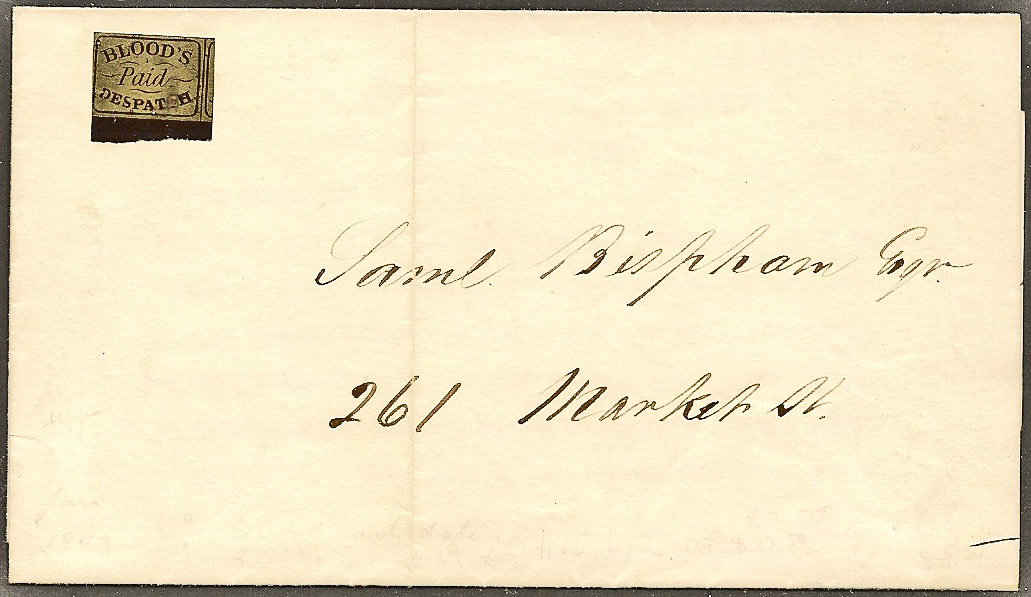 BLOOD'S
Paid
DESPATCH
Saml. Bispham Esqr.
261 Market St.